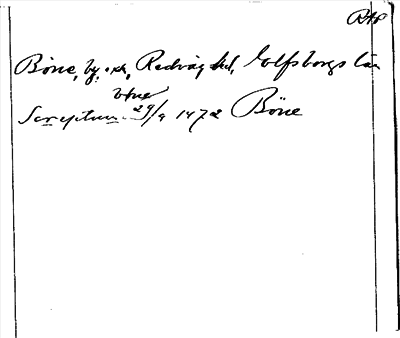 RAP
Böne, by, sn, Redväg hd, Elfsborgs län
Böne
Scriptum 29/9 1472 Böne